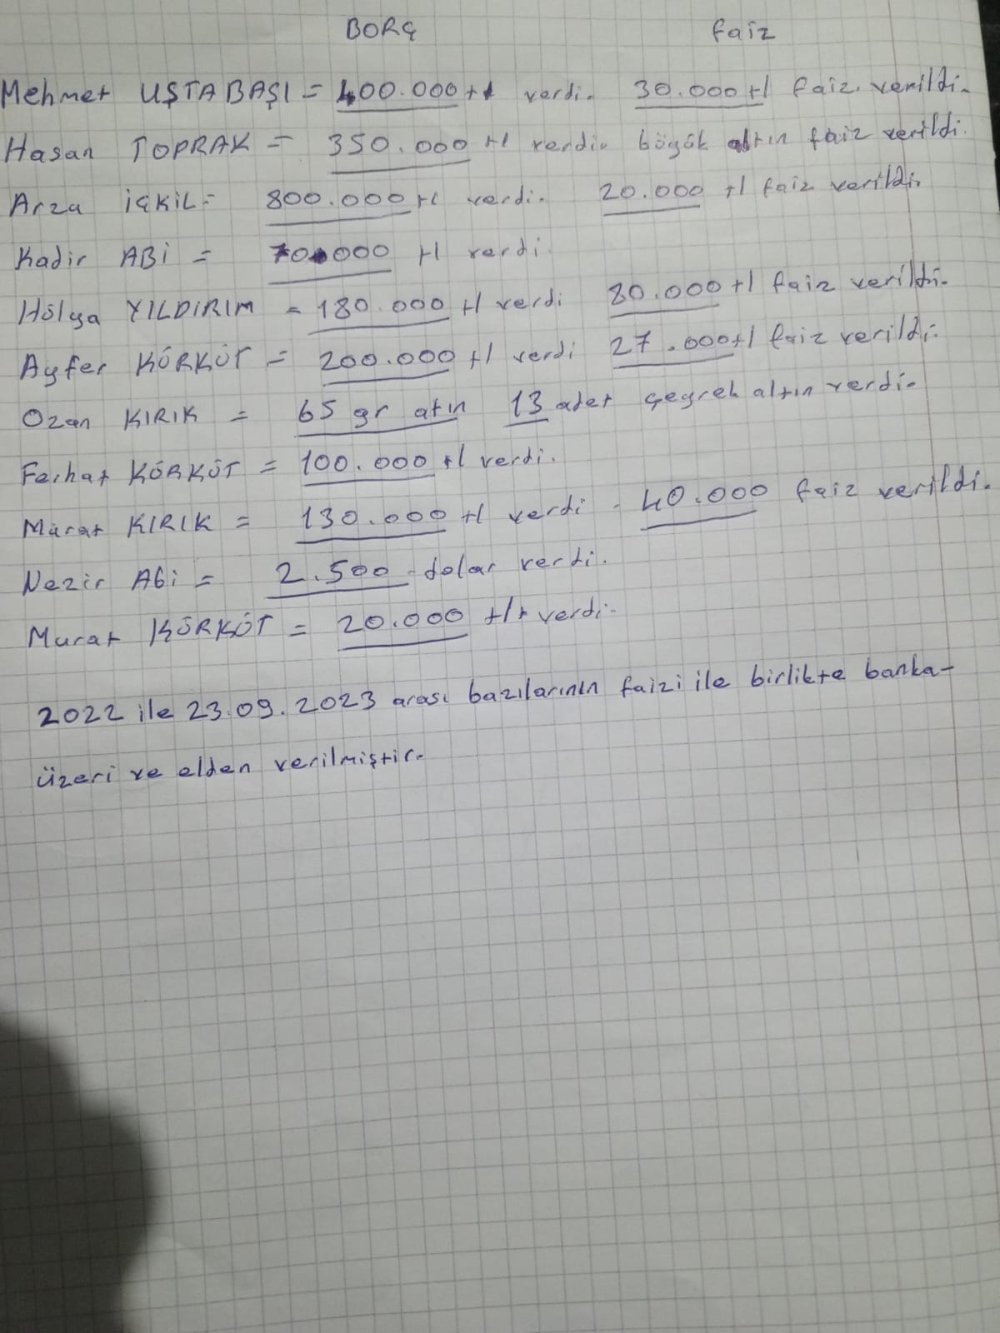 BORÇ faiz
Mehmet USTABAŞI = 400.000 tl verdi. 30.000 tl faiz verildi.
Hasan TOPRAK = 350.000 tl verdi. böyük altın faiz verildi.
Arza İÇKİL = 800.000 tl verdi. 20.000 tl faiz verildi.
Kadir ABİ = 70.000 tl verdi.
Hülya YILDIRIM = 180.000 tl verdi 80.000 tl faiz verildi.
Ayfer KÖRKÖT = 200.000 tl verdi 27.000 tl faiz verildi.
Ozan KIRIK = 65 gr atın 13 adet çeyrek altın verdi.
Ferhat KÖRKÖT = 100.000 tl verdi.
Murat KIRIK = 130.000 tl verdi - 40.000 faiz verildi.
Nezir Abi = 2.500 dolar verdi.
Murat KÖRKÖT = 20.000 tlt verdi.
2022 ile 23.09.2023 arası bazılarının faizi ile birlikte banka-
üzeri ve elden verilmiştir.